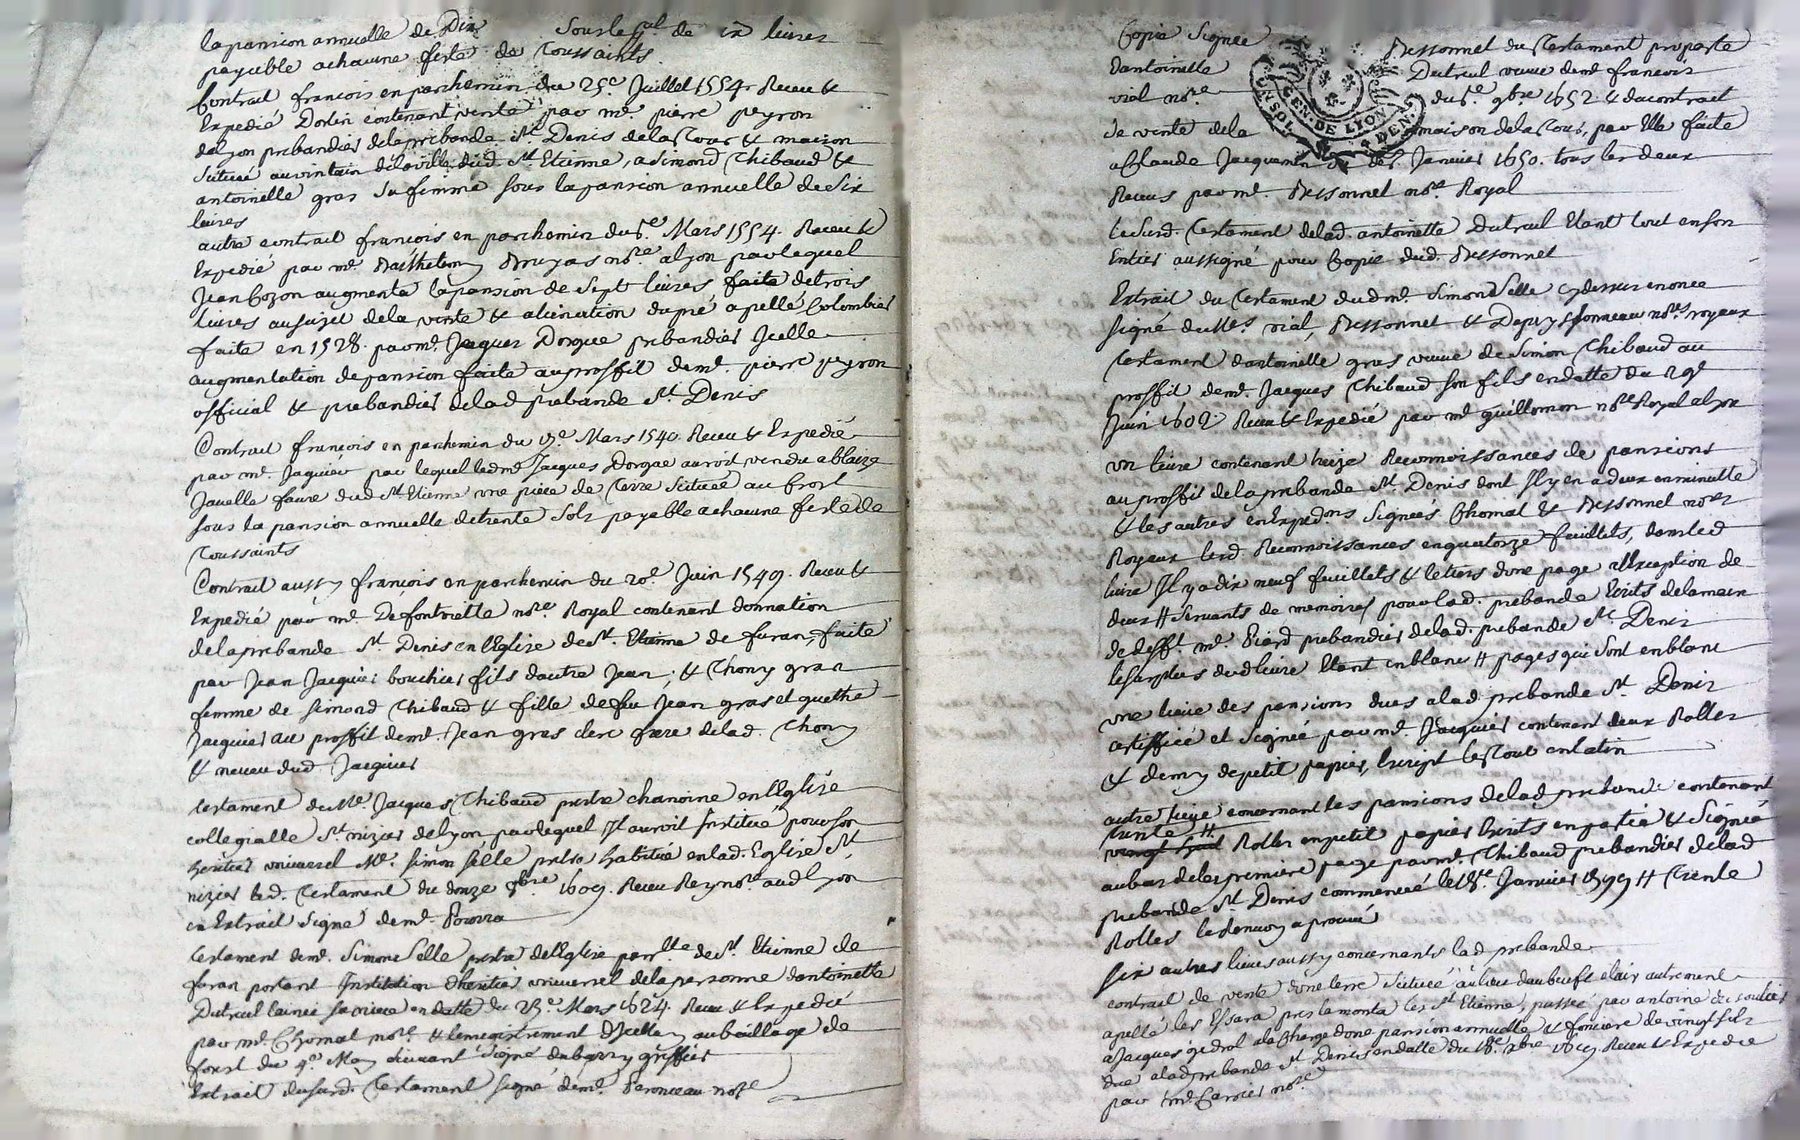 la pansion annuelle de Dix sous le pnl de ix livres
payable a chacune feste de Toussaints
Contrait francois en parchemin du 25e Juillet 1554 Receu &
Expedié Dorlin contenant vente par me pierre peyron
de lyon prebandier de la prebande st Denis de la Cour & maison
scituée au vintain de la ville dud st Etienne, a Simond Thibaud &
antoinette gras sa femme sous la pansion annuelle de Six
livres
autre contrait francois en parchemin du 5e Mars 1554. Receu &
Expedié par me Barthelemy Bruyas nore a lyon par lequel
Jean Cozon augmenta la pansion de sept livres faite de trois
livres au sujet de la vente & alienation du pré apellé Colombier
faite en 1528. par me Jaques Dorgue prebandier Icelle
augmentation de pansion faite au proffit de me pierre peyron
official & prebandier de lad prebande st Denis
Contrait francois en parchemin du 17e Mars 1540 Receu & Expedié
par me Jaquier par lequel led me Jacques Dorgue auroit vendu a blaize
Javelle faure dud st Etienne une piece de Terre scituée au Crost
sous la pansion annuelle de trente sols payable a chacune feste de
Toussaints
Contrait aussy françois en parchemin du 20e Juin 1549. Receu &
Expedié par me Defontvielle nore Royal contenant donnation
de la prebande st Denis en l'Eglise de st Etienne de furan, faite
par Jean Jacquier bouchier fils d'autre Jean, & Thony gran
femme de Simond Thibaud & fille de feu Jean gras et guethe
Jacquier au proffit de me Jean gras clerc frere de lad. Thony
& neveu dud Jacquier
testament de Me Jacques Thibaud prestre chanoine en l'Eglise
collegialle st nizier de lyon par lequel Il auroit Institué pour son
heritier universel Me Simon Selle prestre habitué en lad. Eglise st
nizier led. Testament du donze 9bre 1609. Receu Rey nore aud lyon
en Extrait signé de me
testament de me Simon Selle prestre de l'Eglise parrlle de st Etienne de
furan portant Institution d'heritier universel de la personne d'antoinette
Dutreul en datte du 23e Mars 1624. Receu & Expedié
par me Chomat nore & l'enregistrement d'Icelluy au bailliage de
forest du 4e May suivant signé dubarry greffier
Extrait du surd. Testament signé de me Peronceau nore
Copie signée Bessonnet du Testament proparte
d'antoinette Dutreul veuve de me francois
vial nore du 5e 9bre 1652 & du contrait
de vente de la maison de la Cour, par Elle faite
a Claude Jacquemin du Janvier 1650. tous les deux
Receus par me Bessonnet nore Royal
Le surd. Testament de lad. antoinette Dutreul Etant tout en son
Entier aussi signé pour Copie dud. Bessonnet
Extrait du Testament dud me Simon Selle cy dessus enoncé
signé de Mes vial, Bessonnet & Depuys nores royaux
Testament d'antoinette gras veuve de Simon Thibaud au
proffit de me Jacques Thibaud son fils en datte du 29e
Juin 1602 Receu & Expedié par me guillomon nore Royal a lyon
un livre contenant treize Reconnoissances de pansions
au proffit de la prebande st Denis dont Il y en a deux en minutte
& les autres en Expedons signées Chomat & Bessonnet nores
Royaux lesd. Reconnoissances en quatorze feuillets, dans led
livre Il y a dix neuf feuillets & le tiers d'une page a l'Exception de
deux # servants de memoires pour lad. prebande Ecrits de la main
de defft me Picard prebandier de lad. prebande st Denis
le surplus dud livre Etant en blanc # pages qui sont en blanc
une lieve des pansions dues a lad prebande st Denis
certiffiée et signée par me Jacquier contenant deux Rolles
& demy de petit papier, Escript le tout en latin
autre lieve concernant les pansions de lad prebande contenant
trente #
vingt huit Rolles en petit papier Ecrits en partie & signée
au bas de la premiere page par me Thibaud prebandier de lad
prebande st Denis commencée le 18e Janvier 1599 # Trente
Rolles
Six autres lieves aussy concernants lad prebande
contrait de vente d'une terre scituée au lieu du boeuf clair autrement
apellé les Essara pres la monta les st Etienne, passée par antoine
a Jacques gidrol a la Charge d'une pansion annuelle & fonciere de vingt sols
due a lad prebande st Denis en datte du 18e xbre Receu & Expedié
par me Carrier nore
GEN. DE LYON